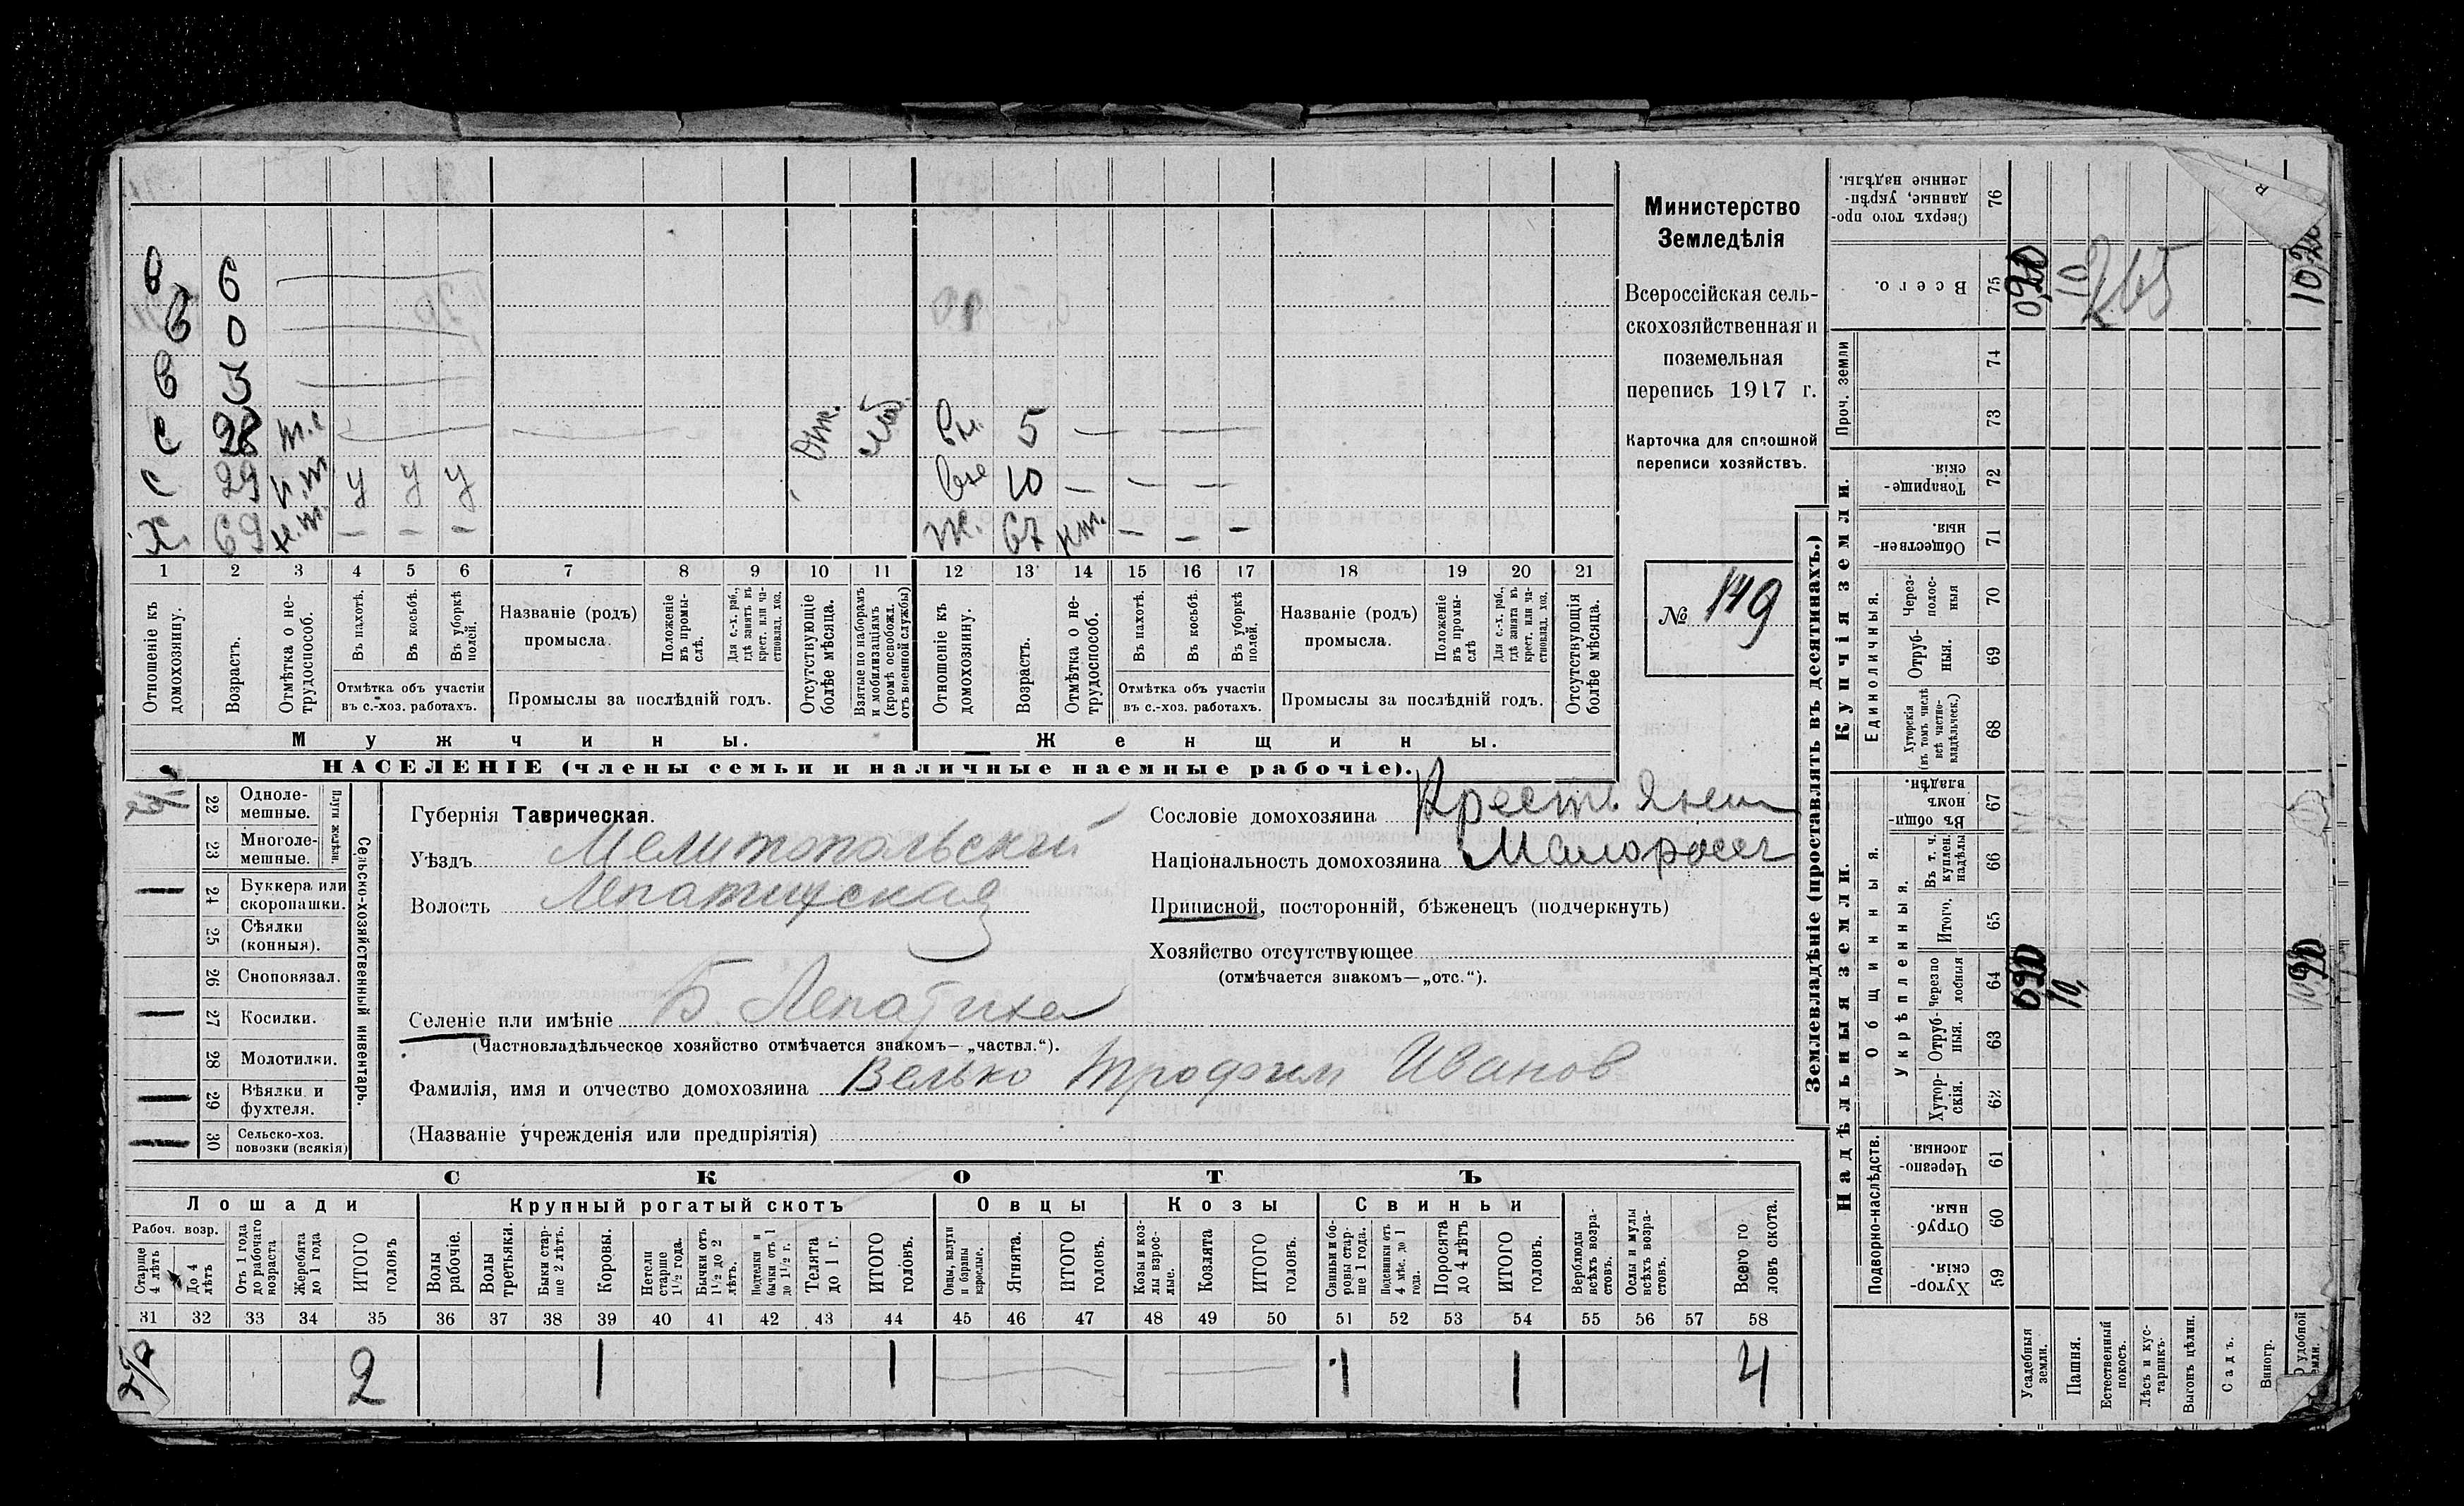 в 6
в 0
в 3
с 28 отл. вн. 5
с 29 н.т у у у вн 10
Х. 69 н.т. — — — ж. 67 нт. — — —
1 2 3 4 5 6 7 8 9 10 11 12 13 14 15 16 17 18 19 20 21
Отношеніе къ домохозяину.
Возрастъ.
Отмѣтка о не-
трудоспособ.
Въ пахотѣ.
Въ косьбѣ.
Въ уборкѣ полей.
Отмѣтка объ участіи
въ с.-хоз. работахъ.
Названіе (родъ)
промысла.
Положеніе въ промы-
слѣ.
Для с.-х. раб., гдѣ занятъ въ крест. или ча-
стновлад. хоз.
Промыслы за послѣдній годъ.
Отсутствующіе болѣе мѣсяца.
Взятые по наборамъ и мобилизаціямъ (кромѣ освобожд. отъ военной службы)
Отношеніе къ домохозяину.
Возрастъ.
Отмѣтка о не-
трудоспособ.
Въ пахотѣ.
Въ косьбѣ.
Въ уборкѣ полей.
Отмѣтка объ участіи
въ с.-хоз. работахъ.
Названіе (родъ)
промысла.
Положеніе въ промы-
слѣ
Для с.-х. раб., гдѣ занята въ крест. или ча-
стновлад. хоз.
Промыслы за послѣдній годъ.
Отсутствующія болѣе мѣсяца.
Мужчины.
Женщины.
НАСЕЛЕНІЕ (члены семьи и наличные наемные рабочіе).
Министерство
Земледѣлія
Всероссійская сель-
скохозяйственная и
поземельная
перепись 1917 г.
Карточка для сплошной
переписи хозяйствъ.
№ 149
Сельско-хозяйственный инвентарь.
Плуги желѣзн.
22 Одноле-
мешные.
23 Многоле-
мешные.
24 Буккера или
скоропашки.
25 Сѣялки
(конныя).
26 Сноповязал.
27 Косилки.
28 Молотилки.
29 Вѣялки и
фухтеля.
30 Сельско-хоз.
повозки (всякія)
Губернія Таврическая.
Уѣздъ Мелитопольскій
Волость Лепатихская
Селеніе или имѣніе Б. Лепатиха
(Частновладѣльческое хозяйство отмѣчается знакомъ—„частвл.“).
Фамилія, имя и отчество домохозяина Велько Трофим Иванов
(Названіе учрежденія или предпріятія)
Сословіе домохозяина Крестьянин
Національность домохозяина Малоросс
Приписной, посторонній, бѣженецъ (подчеркнуть)
Хозяйство отсутствующее
(отмѣчается знакомъ—„отс.“).
СКОТЪ
Лошади
Крупный рогатый скотъ
Овцы
Козы
Свиньи
Рабоч. возр.
Старше 4 лѣтъ
До 4 лѣтъ
Отъ 1 года до рабочаго возраста
Жеребята до 1 года
ИТОГО головъ
Волы рабочіе.
Волы третьяки.
Быки стар-
ше 2 лѣтъ.
Коровы.
Нетели старше 1½ года.
Бычки отъ 1½ до 2 лѣтъ.
Подтелки и бычки отъ 1 до 1½ г.
Телята до 1 г.
ИТОГО головъ.
Овцы, валухи и бараны взрослые.
Ягнята.
ИТОГО головъ.
Козы и коз-
лы взрос-
лые.
Козлята
ИТОГО головъ.
Свиньи и бо-
ровы стар-
ше 1 года.
Подсвинки отъ 4 мѣс. до 1 года.
Поросята до 4 лѣтъ
ИТОГО головъ.
Верблюды всѣхъ возра-
стовъ.
Ослы и мулы всѣхъ возра-
стовъ.
Всего го
ловъ скота.
31 32 33 34 35 36 37 38 39 40 41 42 43 44 45 46 47 48 49 50 51 52 53 54 55 56 57 58
2 1 1 1 1 4
Землевладѣніе (проставлять въ десятинахъ.)
Купчія земли.
Надѣльныя земли.
Сверхъ того про-
данные, укрѣп-
ленные надѣлы. 76
Всего. 75
10 265
Проч. земли
74
73
Товарище-
скія. 72
Обществен-
ныя. 71
Единоличныя.
Через-
полос-
ныя 70
Отруб-
ныя. 69
Хуторскія (въ томъ числѣ всѣ частно-
владѣльческ.) 68
Общинныя.
Въ общин-
номъ
владѣн. 67
Укрѣпленныя.
Въ т. ч. куплен. надѣлы 66
Итого. 65
Черезпо
лосныя 64
10,
Отруб-
ныя. 63
Хутор-
скія. 62
Подворно-наслѣдств.
Черезпо-
лосныя. 61
Отруб-
ныя. 60
Хутор-
скія. 59
Усадебныя земли.
Пашня.
Естественный покосъ.
Лѣсъ и кус-
тарникъ.
Выгонъ цѣлин.
Садъ.
Виногр.
удобной